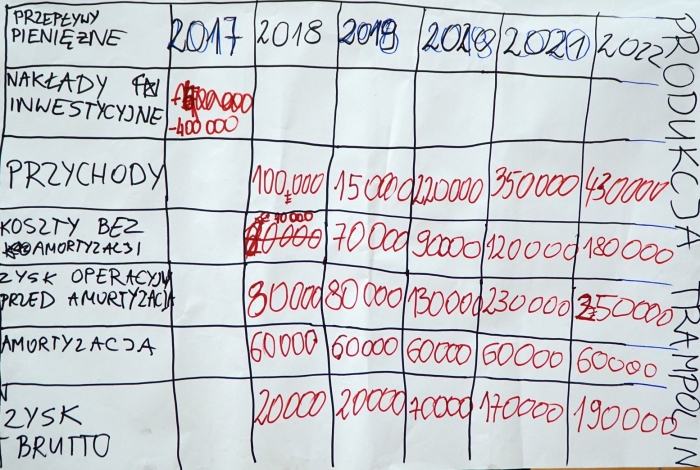 PRZEPŁYWY
PIENIĘŻNE 2017 2018 2019 2020 2021 2022
NAKŁADY
INWESTYCYJNE -400 000
PRZYCHODY 100,000 150000 220000 350000 430000
KOSZTY BEZ
AMORTYZACJI 70000 90000 120000 180000
ZYSK OPERACYJNY
PRZED AMORTYZACJĄ 80000 80000 130000 230000 250000
AMORTYZACJA 60000 60000 60000 60000 60000
ZYSK
BRUTTO 20000 20000 70000 170000 190000
PRODUKCJA TRAMPOLIN